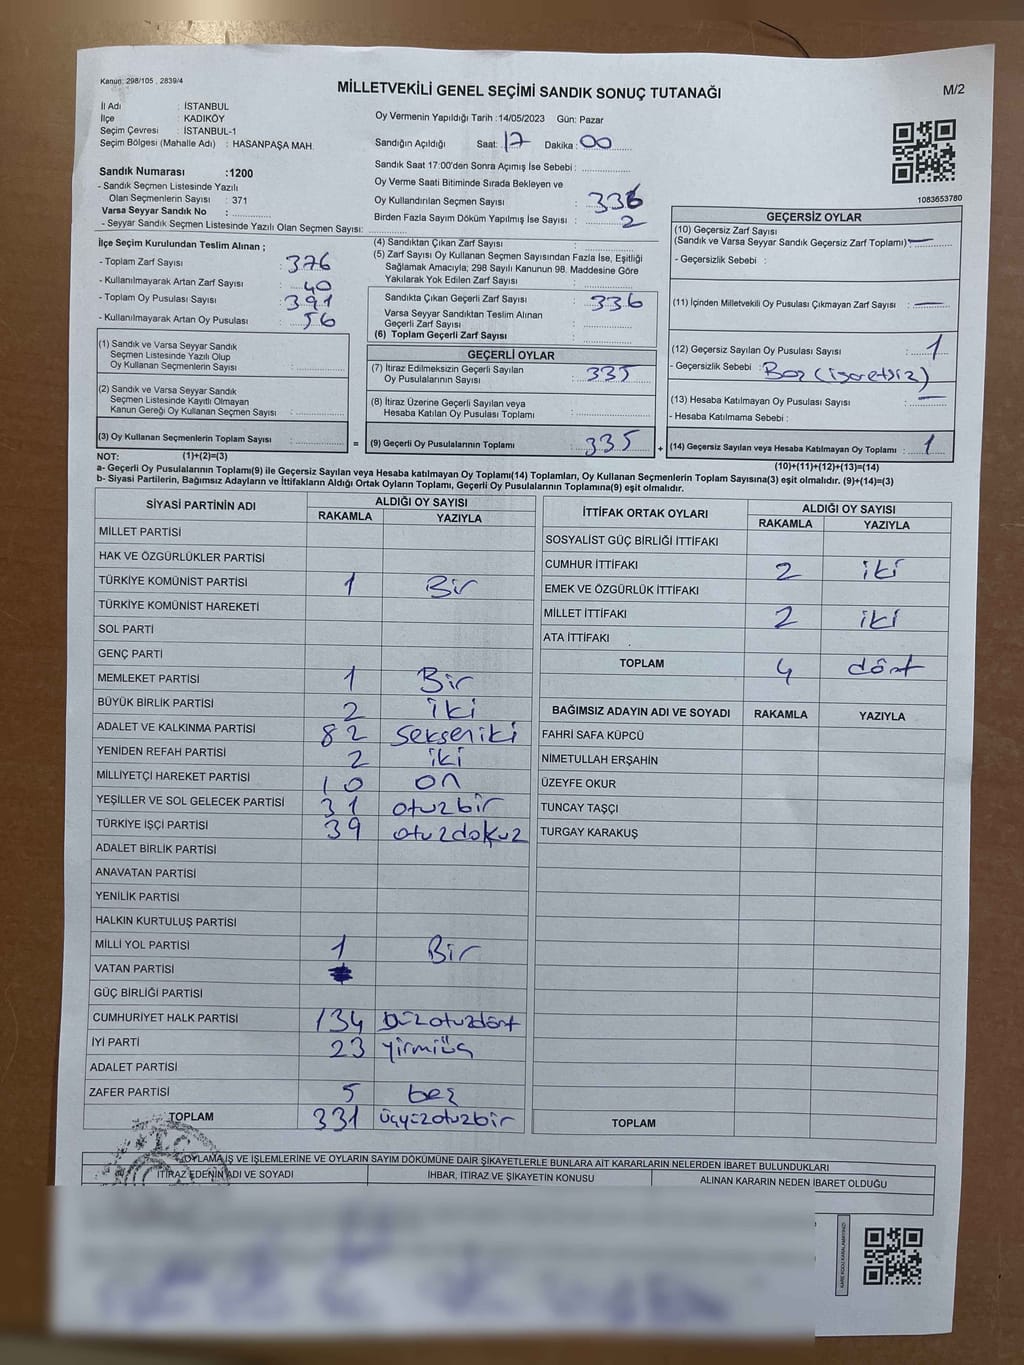 Kanun: 298/105 , 2839/4
MİLLETVEKİLİ GENEL SEÇİMİ SANDIK SONUÇ TUTANAĞI
M/2
İl Adı : İSTANBUL
İlçe : KADIKÖY
Seçim Çevresi : İSTANBUL-1
Seçim Bölgesi (Mahalle Adı) : HASANPAŞA MAH.
Oy Vermenin Yapıldığı Tarih :14/05/2023 Gün: Pazar
Sandığın Açıldığı Saat: 17 Dakika: 00
Sandık Saat 17:00'den Sonra Açımış İse Sebebi :
Oy Verme Saati Bitiminde Sırada Bekleyen ve
Oy Kullandırılan Seçmen Sayısı : 336
Birden Fazla Sayım Döküm Yapılmış İse Sayısı : 2
1083653780
Sandık Numarası :1200
- Sandık Seçmen Listesinde Yazılı
Olan Seçmenlerin Sayısı : 371
Varsa Seyyar Sandık No :
- Seyyar Sandık Seçmen Listesinde Yazılı Olan Seçmen Sayısı:
İlçe Seçim Kurulundan Teslim Alınan ;
- Toplam Zarf Sayısı : 376
- Kullanılmayarak Artan Zarf Sayısı : 40
- Toplam Oy Pusulası Sayısı : 391
- Kullanılmayarak Artan Oy Pusulası : 56
(1) Sandık ve Varsa Seyyar Sandık
Seçmen Listesinde Yazılı Olup
Oy Kullanan Seçmenlerin Sayısı :
(2) Sandık ve Varsa Seyyar Sandık
Seçmen Listesinde Kayıtlı Olmayan
Kanun Gereği Oy Kullanan Seçmen Sayısı :
(3) Oy Kullanan Seçmenlerin Toplam Sayısı :
(4) Sandıktan Çıkan Zarf Sayısı :
(5) Zarf Sayısı Oy Kullanan Seçmen Sayısından Fazla İse, Eşitliği
Sağlamak Amacıyla; 298 Sayılı Kanunun 98. Maddesine Göre
Yakılarak Yok Edilen Zarf Sayısı :
Sandıkta Çıkan Geçerli Zarf Sayısı : 336
Varsa Seyyar Sandıktan Teslim Alınan
Geçerli Zarf Sayısı :
(6) Toplam Geçerli Zarf Sayısı :
GEÇERLİ OYLAR
(7) İtiraz Edilmeksizin Geçerli Sayılan
Oy Pusulalarının Sayısı : 335
(8) İtiraz Üzerine Geçerli Sayılan veya
Hesaba Katılan Oy Pusulası Toplamı :
= (9) Geçerli Oy Pusulalarının Toplamı : 335 +
GEÇERSİZ OYLAR
(10) Geçersiz Zarf Sayısı
(Sandık ve Varsa Seyyar Sandık Geçersiz Zarf Toplamı) : —
- Geçersizlik Sebebi :
(11) İçinden Milletvekili Oy Pusulası Çıkmayan Zarf Sayısı : —
(12) Geçersiz Sayılan Oy Pusulası Sayısı : 1
- Geçersizlik Sebebi : Boş (işaretsiz)
(13) Hesaba Katılmayan Oy Pusulası Sayısı : —
- Hesaba Katılmama Sebebi :
(14) Geçersiz Sayılan veya Hesaba Katılmayan Oy Toplamı : 1
NOT: (1)+(2)=(3)
(10)+(11)+(12)+(13)=(14)
a- Geçerli Oy Pusulalarının Toplamı(9) ile Geçersiz Sayılan veya Hesaba katılmayan Oy Toplamı(14) Toplamları, Oy Kullanan Seçmenlerin Toplam Sayısına(3) eşit olmalıdır. (9)+(14)=(3)
b- Siyasi Partilerin, Bağımsız Adayların ve İttifakların Aldığı Ortak Oyların Toplamı, Geçerli Oy Pusulalarının Toplamına(9) eşit olmalıdır.
SİYASİ PARTİNİN ADI ALDIĞI OY SAYISI
RAKAMLA YAZIYLA
MİLLET PARTİSİ
HAK VE ÖZGÜRLÜKLER PARTİSİ
TÜRKİYE KOMÜNİST PARTİSİ 1 Bir
TÜRKİYE KOMÜNİST HAREKETİ
SOL PARTİ
GENÇ PARTİ
MEMLEKET PARTİSİ 1 Bir
BÜYÜK BİRLİK PARTİSİ 2 iki
ADALET VE KALKINMA PARTİSİ 82 Sekseniki
YENİDEN REFAH PARTİSİ 2 iki
MİLLİYETÇİ HAREKET PARTİSİ 10 on
YEŞİLLER VE SOL GELECEK PARTİSİ 31 otuzbir
TÜRKİYE İŞÇİ PARTİSİ 39 otuzdokuz
ADALET BİRLİK PARTİSİ
ANAVATAN PARTİSİ
YENİLİK PARTİSİ
HALKIN KURTULUŞ PARTİSİ
MİLLİ YOL PARTİSİ 1 Bir
VATAN PARTİSİ
GÜÇ BİRLİĞİ PARTİSİ
CUMHURİYET HALK PARTİSİ 134 yüzotuzdört
İYİ PARTİ 23 yirmiüç
ADALET PARTİSİ
ZAFER PARTİSİ 5 beş
TOPLAM 331 üçyüzotuzbir
İTTİFAK ORTAK OYLARI ALDIĞI OY SAYISI
RAKAMLA YAZIYLA
SOSYALİST GÜÇ BİRLİĞİ İTTİFAKI
CUMHUR İTTİFAKI 2 iki
EMEK VE ÖZGÜRLÜK İTTİFAKI
MİLLET İTTİFAKI 2 iki
ATA İTTİFAKI
TOPLAM 4 dört
BAĞIMSIZ ADAYIN ADI VE SOYADI RAKAMLA YAZIYLA
FAHRİ SAFA KÜPCÜ
NİMETULLAH ERŞAHİN
ÜZEYFE OKUR
TUNCAY TAŞÇI
TURGAY KARAKUŞ
TOPLAM
OYLAMA İŞ VE İŞLEMLERİNE VE OYLARIN SAYIM DÖKÜMÜNE DAİR ŞİKAYETLERLE BUNLARA AİT KARARLARIN NELERDEN İBARET BULUNDUKLARI
İTİRAZ EDENİN ADI VE SOYADI İHBAR, İTİRAZ VE ŞİKAYETİN KONUSU ALINAN KARARIN NEDEN İBARET OLDUĞU